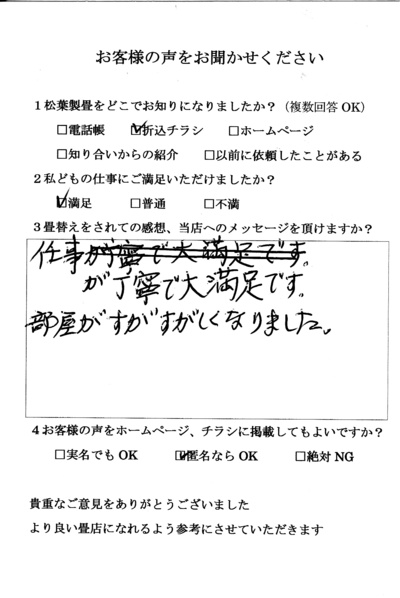 お客様の声をお聞かせください
1松葉製畳をどこでお知りになりましたか？（複数回答OK）
□電話帳 ☑折込チラシ □ホームページ
□知り合いからの紹介 □以前に依頼したことがある
2私どもの仕事にご満足いただけましたか？
☑満足 □普通 □不満
3畳替えをされての感想、当店へのメッセージを頂けますか？
仕事が丁寧で大満足です。
が丁寧で大満足です。
部屋がすがすがしくなりました。
4お客様の声をホームページ、チラシに掲載してもよいですか？
□実名でもOK ☑匿名ならOK □絶対NG
貴重なご意見をありがとうございました
より良い畳店になれるよう参考にさせていただきます